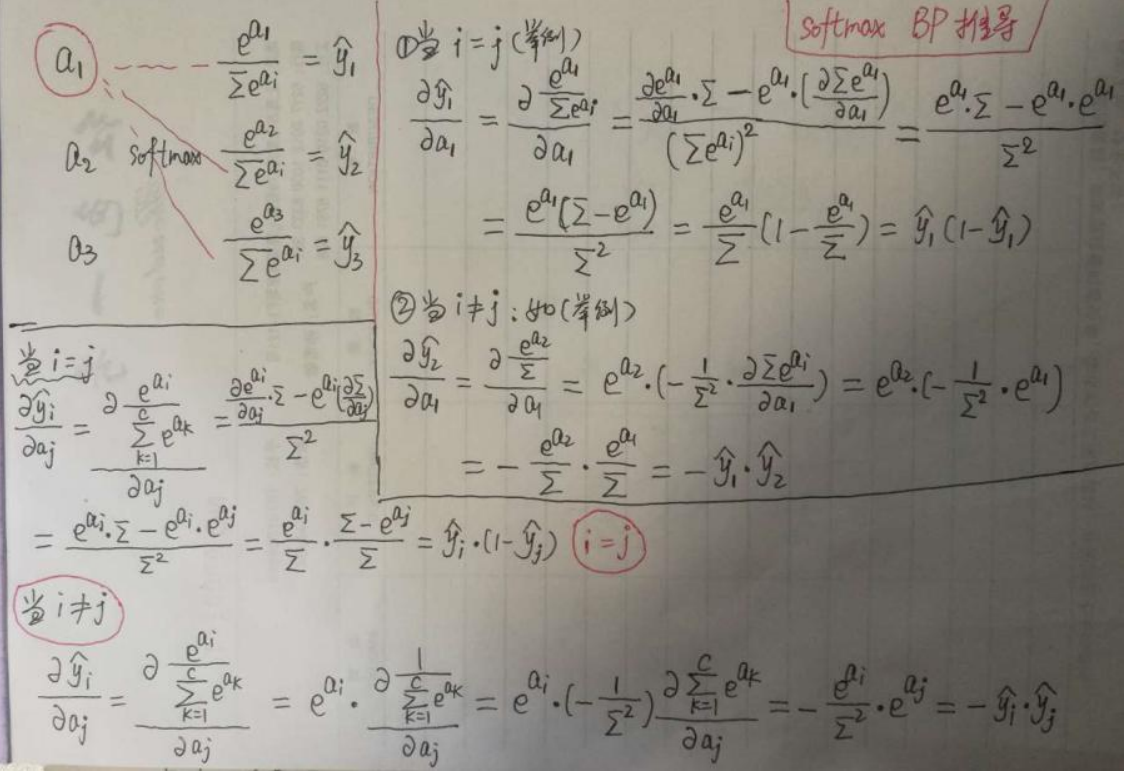 softmax BP 推导
a₁ --- e^{a₁}/Σe^{aᵢ} = ŷ₁
a₂ softmax e^{a₂}/Σe^{aᵢ} = ŷ₂
a₃ e^{a₃}/Σe^{aᵢ} = ŷ₃
①当 i=j (举例)
∂ŷ₁/∂a₁ = ∂(e^{a₁}/Σe^{aᵢ})/∂a₁ = (∂e^{a₁}/∂a₁·Σ − e^{a₁}·(∂Σe^{a₁}/∂a₁))/(Σe^{aᵢ})² = (e^{a₁}·Σ − e^{a₁}·e^{a₁})/Σ²
= e^{a₁}(Σ−e^{a₁})/Σ² = e^{a₁}/Σ (1 − e^{a₁}/Σ) = ŷ₁(1−ŷ₁)
②当 i≠j: 如(举例)
∂ŷ₂/∂a₁ = ∂(e^{a₂}/Σ)/∂a₁ = e^{a₂}·(−1/Σ²·∂Σe^{aᵢ}/∂a₁) = e^{a₂}·(−1/Σ²·e^{a₁})
= −e^{a₂}/Σ·e^{a₁}/Σ = −ŷ₁·ŷ₂
当 i=j
∂ŷᵢ/∂aⱼ = ∂(e^{aᵢ}/Σ_{k=1}^{C}e^{aₖ})/∂aⱼ = (∂e^{aᵢ}/∂aⱼ·Σ − e^{aᵢ}(∂Σ/∂aⱼ))/Σ²
= (e^{aᵢ}·Σ − e^{aᵢ}·e^{aⱼ})/Σ² = e^{aᵢ}/Σ·(Σ−e^{aⱼ})/Σ = ŷᵢ·(1−ŷⱼ) i=j
当 i≠j
∂ŷᵢ/∂aⱼ = ∂(e^{aᵢ}/Σ_{k=1}^{C}e^{aₖ})/∂aⱼ = e^{aᵢ}·∂(1/Σ_{k=1}^{C}e^{aₖ})/∂aⱼ = e^{aᵢ}·(−1/Σ²)∂Σ_{k=1}^{C}e^{aₖ}/∂aⱼ = −e^{aᵢ}/Σ²·e^{aⱼ} = −ŷᵢ·ŷⱼ